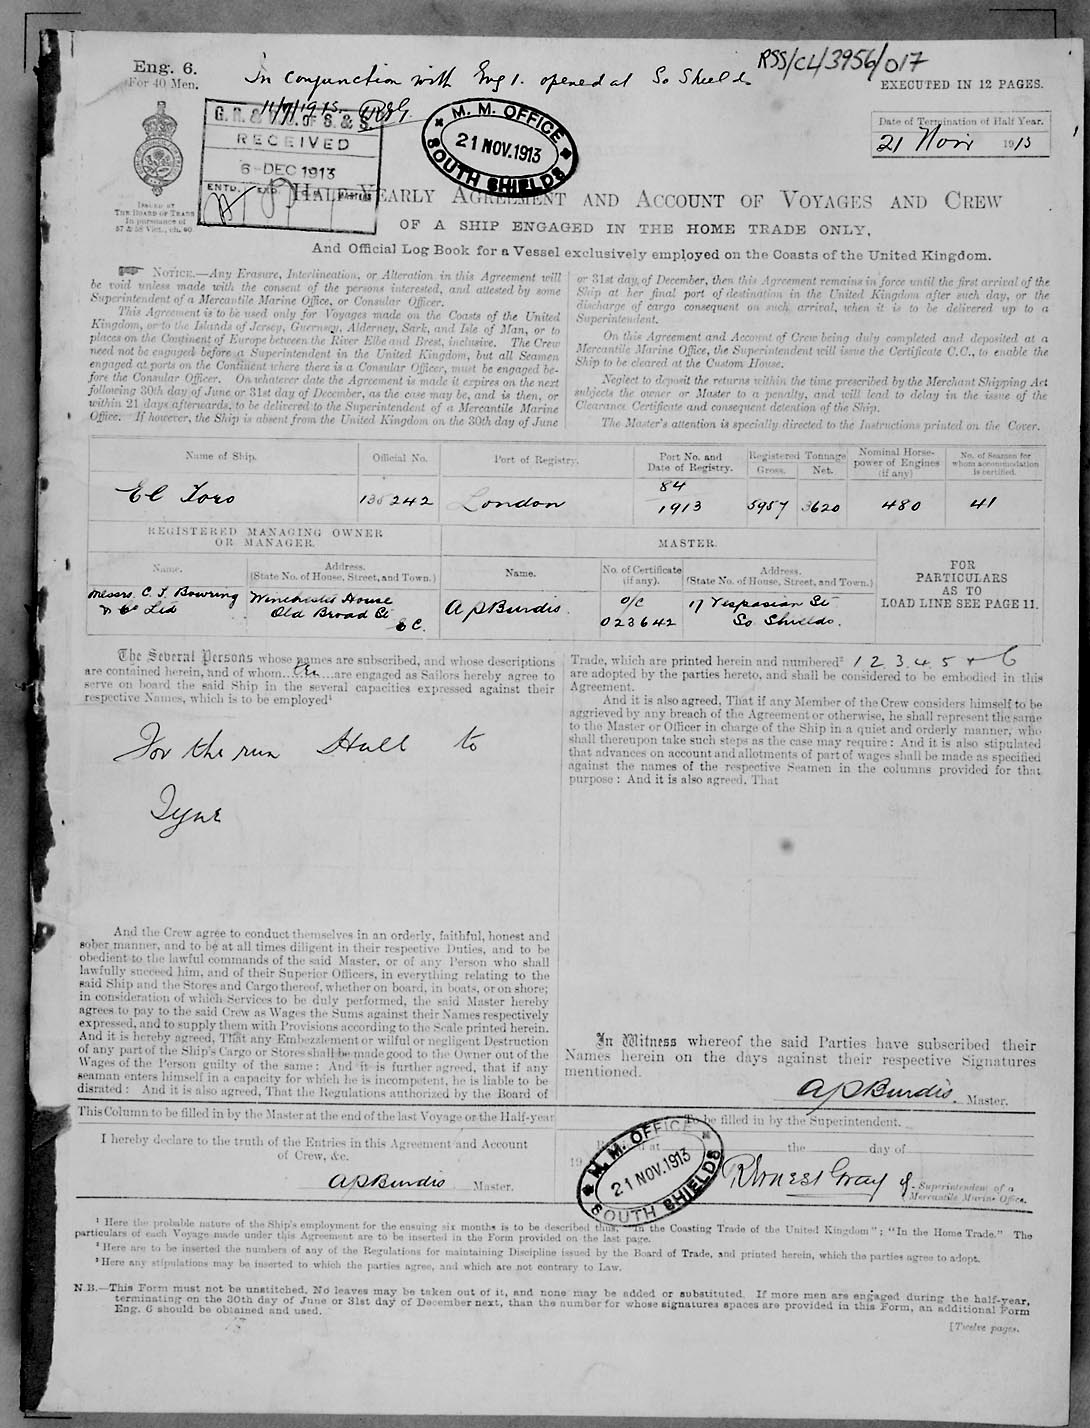 RSS/CL/3956/017
Eng. 6.
For 40 Men.
In conjunction with Eng 1. opened at So Shields
EXECUTED IN 12 PAGES.
RECEIVED
6 DEC 1913
M. M. OFFICE
21 NOV. 1913
SOUTH SHIELDS
Date of Termination of Half Year.
21 Nov 1913
ISSUED BY
THE BOARD OF TRADE
In pursuance of
57 & 58 Vict., ch. 60
HALF-YEARLY AGREEMENT AND ACCOUNT OF VOYAGES AND CREW
OF A SHIP ENGAGED IN THE HOME TRADE ONLY,
And Official Log Book for a Vessel exclusively employed on the Coasts of the United Kingdom.
NOTICE.—Any Erasure, Interlineation, or Alteration in this Agreement will
be void unless made with the consent of the persons interested, and attested by some
Superintendent of a Mercantile Marine Office, or Consular Officer.
This Agreement is to be used only for Voyages made on the Coasts of the United
Kingdom, or to the Islands of Jersey, Guernsey, Alderney, Sark, and Isle of Man, or to
places on the Continent of Europe between the River Elbe and Brest, inclusive. The Crew
need not be engaged before a Superintendent in the United Kingdom, but all Seamen
engaged at ports on the Continent where there is a Consular Officer, must be engaged be-
fore the Consular Officer. On whatever date the Agreement is made it expires on the next
following 30th day of June or 31st day of December, as the case may be, and is then, or
within 21 days afterwards, to be delivered to the Superintendent of a Mercantile Marine
Office. If however, the Ship is absent from the United Kingdom on the 30th day of June
or 31st day of December, then this Agreement remains in force until the first arrival of the
Ship at her final port of destination in the United Kingdom after such day, or the
discharge of cargo consequent on such arrival, when it is to be delivered up to a
Superintendent.
On this Agreement and Account of Crew being duly completed and deposited at a
Mercantile Marine Office, the Superintendent will issue the Certificate C.C., to enable the
Ship to be cleared at the Custom House.
Neglect to deposit the returns within the time prescribed by the Merchant Shipping Act
subjects the owner or Master to a penalty, and will lead to delay in the issue of the
Clearance Certificate and consequent detention of the Ship.
The Master's attention is specially directed to the Instructions printed on the Cover.
Name of Ship. Official No. Port of Registry. Port No. and Date of Registry. Registered Tonnage Gross. Net. Nominal Horse-power of Engines (if any) No. of Seamen for whom accommodation is certified.
El Toro 135242 London 84 1913 5957 3620 480 41
REGISTERED MANAGING OWNER
OR MANAGER.
MASTER.
FOR
PARTICULARS
AS TO
LOAD LINE SEE PAGE 11.
Name. Address. (State No. of House, Street, and Town.) Name. No. of Certificate (if any). Address. (State No. of House, Street, and Town.)
Messrs. C. T. Bowring & Co Ltd Winchester House Old Broad St E C. A P Burdis. O/C 023642 17 Vespasian St So Shields.
The Several Persons whose names are subscribed, and whose descriptions
are contained herein, and of whom are engaged as Sailors hereby agree to
serve on board the said Ship in the several capacities expressed against their
respective Names, which is to be employed¹
For the run Hull to
Tyne
And the Crew agree to conduct themselves in an orderly, faithful, honest and
sober manner, and to be at all times diligent in their respective Duties, and to be
obedient to the lawful commands of the said Master, or of any Person who shall
lawfully succeed him, and of their Superior Officers, in everything relating to the
said Ship and the Stores and Cargo thereof, whether on board, in boats, or on shore;
in consideration of which Services to be duly performed, the said Master hereby
agrees to pay to the said Crew as Wages the Sums against their Names respectively
expressed, and to supply them with Provisions according to the Scale printed herein.
And it is hereby agreed, That any Embezzlement or wilful or negligent Destruction
of any part of the Ship's Cargo or Stores shall be made good to the Owner out of the
Wages of the Person guilty of the same: And it is further agreed, that if any
seaman enters himself in a capacity for which he is incompetent, he is liable to be
disrated: And it is also agreed, That the Regulations authorized by the Board of
Trade, which are printed herein and numbered² 1 2 3 4 5 + 6
are adopted by the parties hereto, and shall be considered to be embodied in this
Agreement.
And it is also agreed, That if any Member of the Crew considers himself to be
aggrieved by any breach of the Agreement or otherwise, he shall represent the same
to the Master or Officer in charge of the Ship in a quiet and orderly manner, who
shall thereupon take such steps as the case may require: And it is also stipulated
that advances on account and allotments of part of wages shall be made as specified
against the names of the respective Seamen in the columns provided for that
purpose: And it is also agreed, That
In Witness whereof the said Parties have subscribed their
Names herein on the days against their respective Signatures
mentioned.
A P Burdis. Master.
This Column to be filled in by the Master at the end of the last Voyage or the Half-year
I hereby declare to the truth of the Entries in this Agreement and Account
of Crew, &c.
A P Burdis Master.
To be filled in by the Superintendent.
at the day of
19
M. M. OFFICE
21 NOV. 1913
SOUTH SHIELDS
R Ernest Gray
Superintendent of a
Mercantile Marine Office.
¹ Here the probable nature of the Ship's employment for the ensuing six months is to be described thus, "In the Coasting Trade of the United Kingdom"; "In the Home Trade." The
particulars of each Voyage made under this Agreement are to be inserted in the Form provided on the last page.
² Here are to be inserted the numbers of any of the Regulations for maintaining Discipline issued by the Board of Trade, and printed herein, which the parties agree to adopt.
³ Here any stipulations may be inserted to which the parties agree, and which are not contrary to Law.
N.B.—This Form must not be unstitched. No leaves may be taken out of it, and none may be added or substituted. If more men are engaged during the half-year,
terminating on the 30th day of June or 31st day of December next, than the number for whose signatures spaces are provided in this Form, an additional Form
Eng. 6 should be obtained and used.
[Twelve pages.